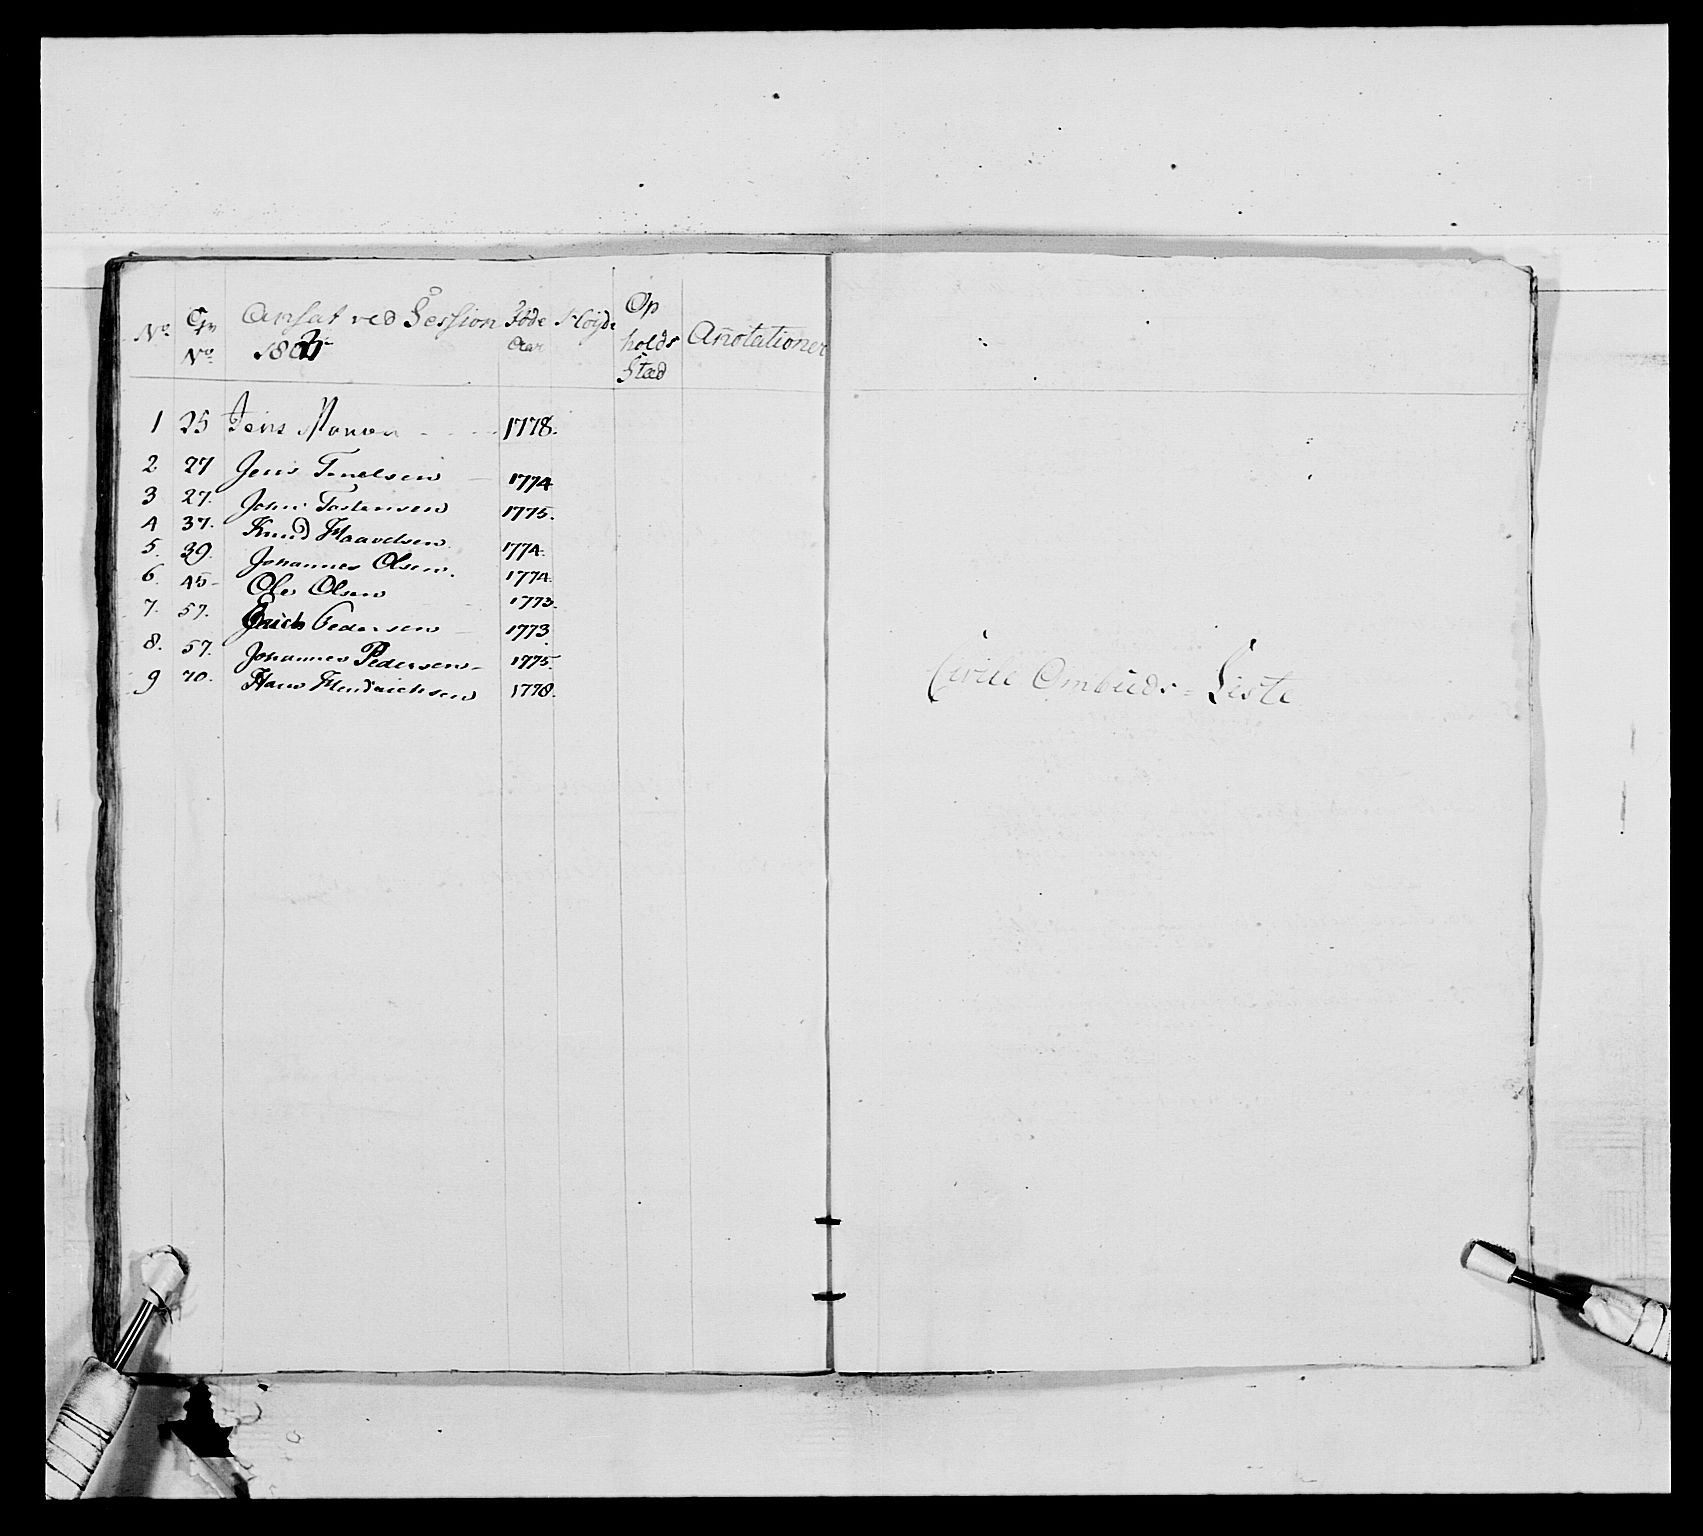 No. Gn No. Ansat ved Session 1803 Føde Aar Høyde Op holds Stæd Anotationer
1 25 Jens 1778.
2 27 Jens 1774
3 27. John Tostensen 1775.
4 37. Knud Haavelsen 1774.
5. 39. Johannes Olsen. 1774.
6. 45- Ole Olsen 1773.
7. 57. Erich Pedersen 1773
8. 57. Johannes Pedersen- 1775.
9 70. Hans Hendrichsen 1778.
Civile Ombuds-Liste